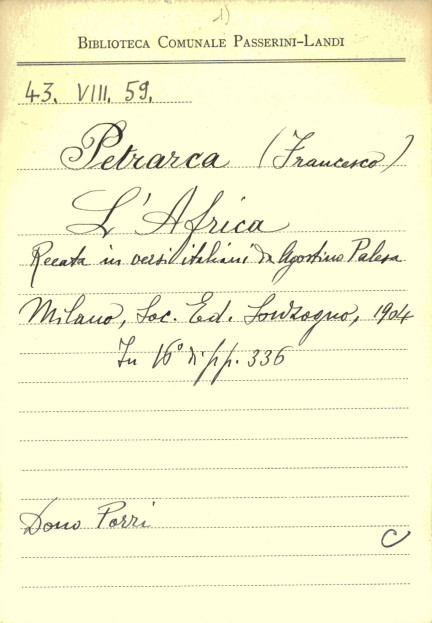 1)
BIBLIOTECA COMUNALE PASSERINI-LANDI
43. VIII. 59.
Petrarca (Francesco)
L'Africa
Recata in versi italiani da Agostino Palesa
Milano, Soc. Ed. Sonzogno, 1904
In 16° di pp. 336
Dono Porri
C